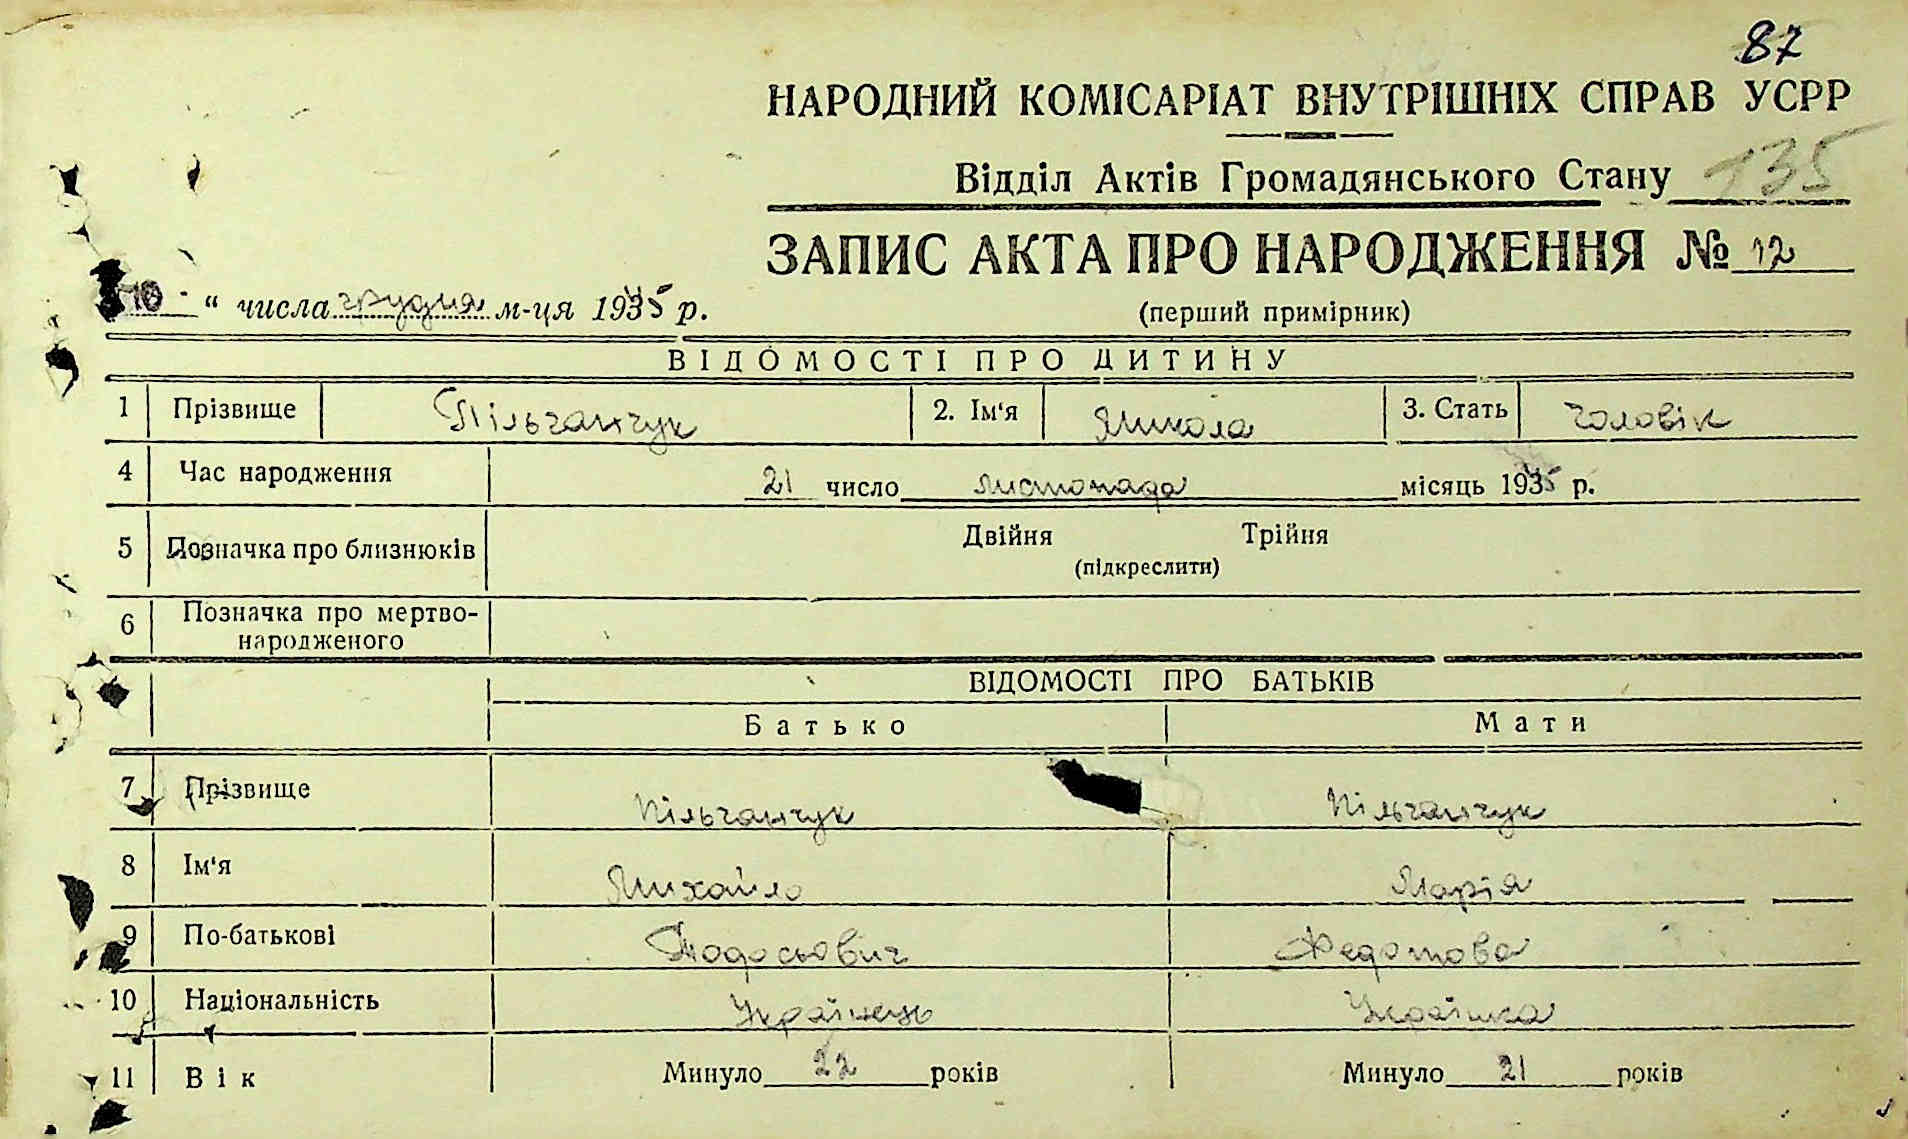 87
НАРОДНИЙ КОМІСАРІАТ ВНУТРІШНІХ СПРАВ УСРР
Відділ Актів Громадянського Стану 135
ЗАПИС АКТА ПРО НАРОДЖЕННЯ № 12
10 “ числа грудня м-ця 1935 р.
(перший примірник)
ВІДОМОСТІ ПРО ДИТИНУ
1 Прізвище Пільганчук 2. Ім‘я Микола 3. Стать Чоловік
4 Час народження 21 число листопада місяць 1935 р.
5 Позначка про близнюків Двійня Трійня
(підкреслити)
6 Позначка про мертво-
народженого
ВІДОМОСТІ ПРО БАТЬКІВ
Батько Мати
7 Прізвище Пільганчук Пільганчук
8 Ім‘я Михайло Марія
9 По-батькові Тодосьович Федотова
10 Національність Українець Українка
11 Вік Минуло 22 років Минуло 21 років